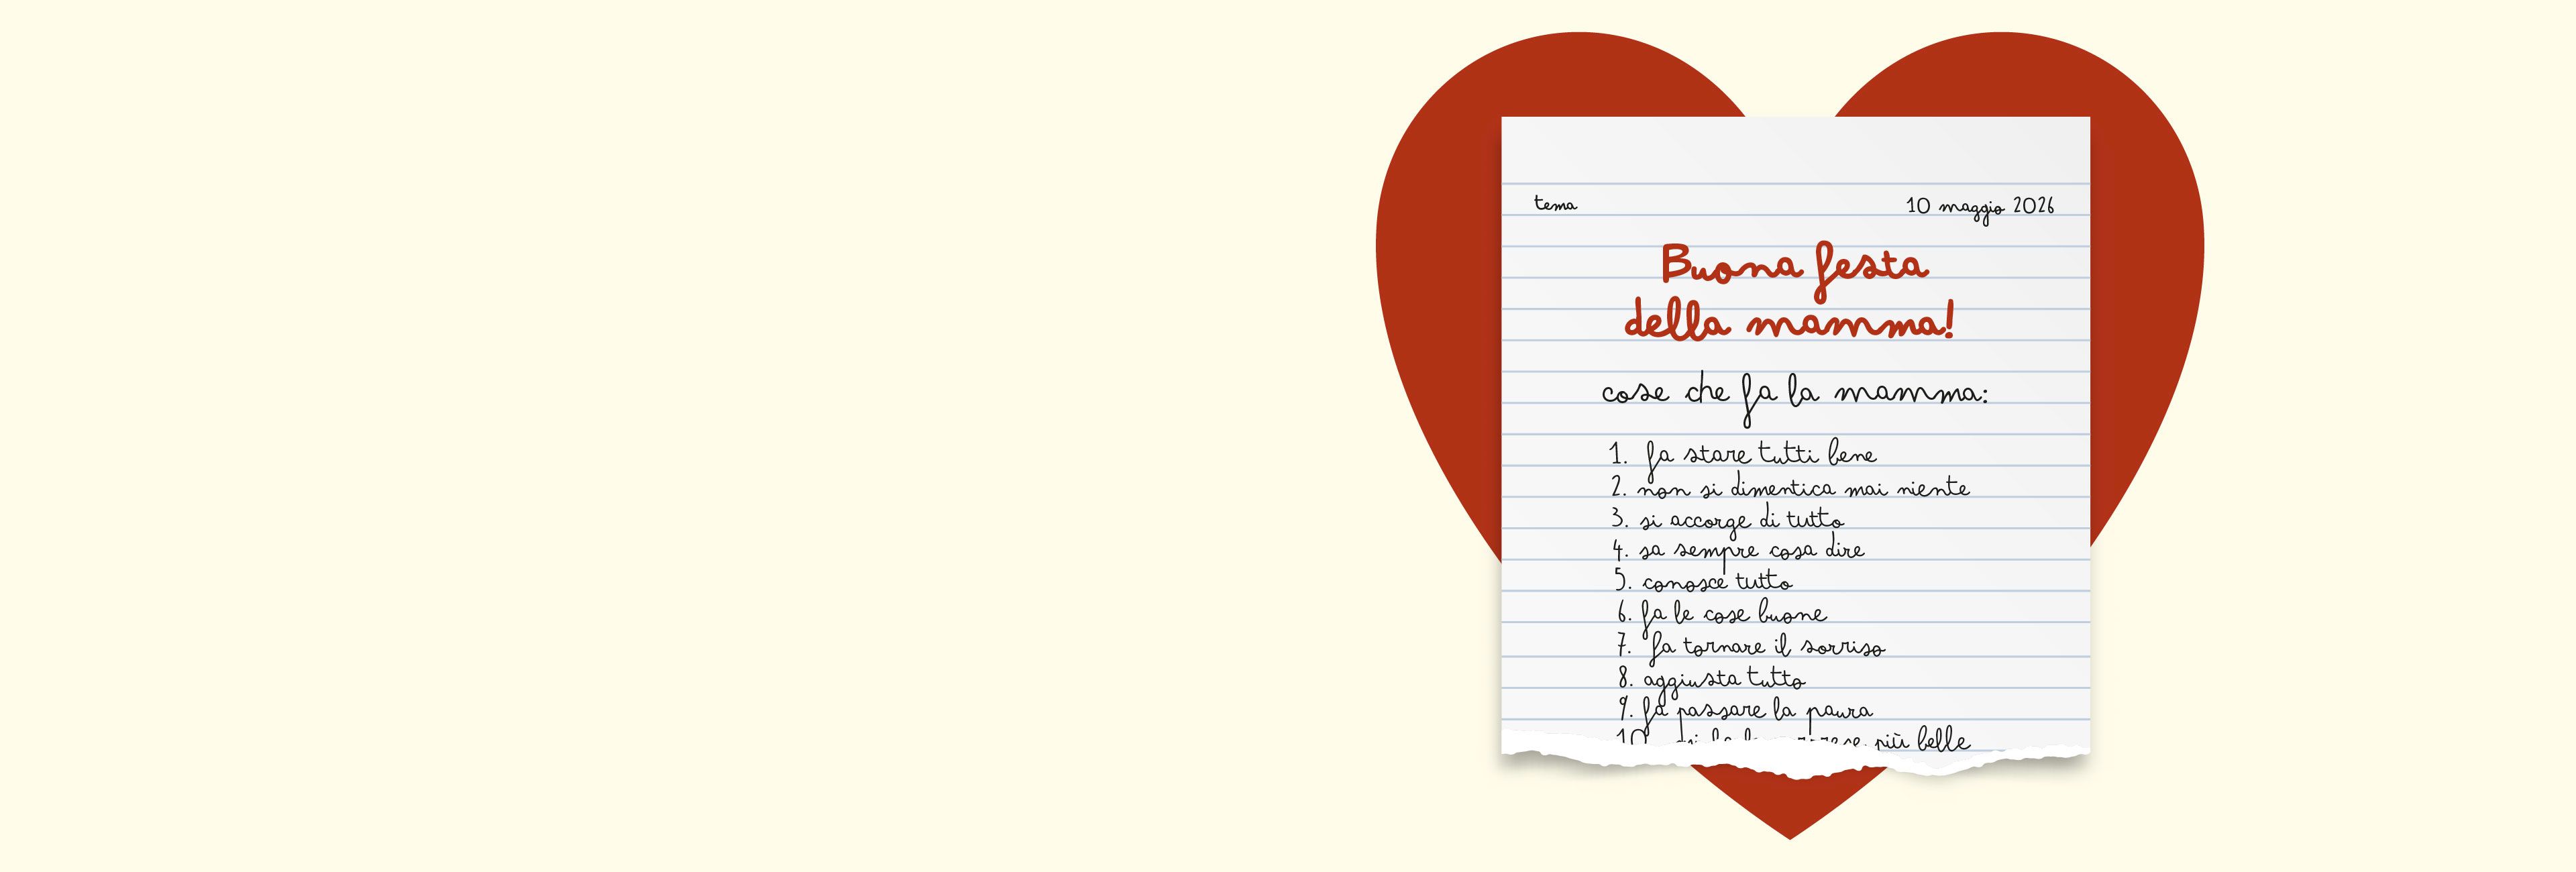 tema 10 maggio 2026
Buona festa
della mamma!
cose che fa la mamma:
1. fa stare tutti bene
2. non si dimentica mai niente
3. si accorge di tutto
4. sa sempre cosa dire
5. conosce tutto
6. fa le cose buone
7. fa tornare il sorriso
8. aggiusta tutto
9. fa passare la paura
10 più belle